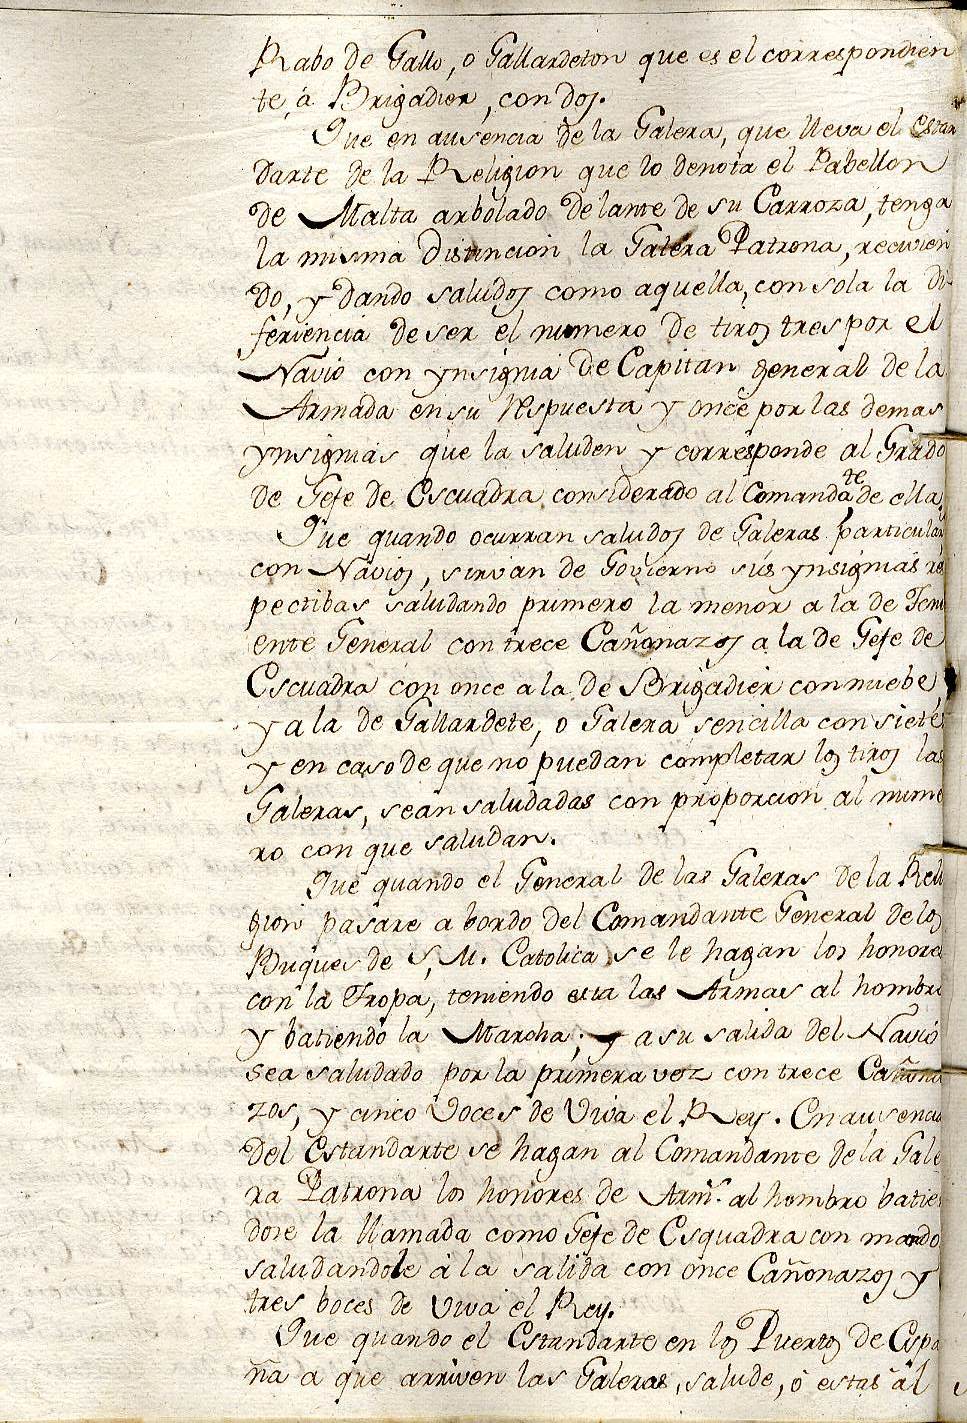 Rabo de Gallo, o Gallardeton que es el correspondien
te, á Brigadier, con dos.
Que en ausencia de la Galera, que lleva el Estan
darte de la Religion que lo denota el Pabellon
de Malta arbolado delante de su Carroza, tenga
la misma distincion la Galera Patrona, recivien
do, y dando saludos como aquella, con sola la di-
feriencia de ser el numero de tiros tres por el
Navio con ynsignia de Capitan general de la
Armada en su respuesta y once por las demas
ynsignias que la saluden y corresponde al Grado
de Gefe de Escuadra considerado al Comandate de ella.
Que quando ocurran saludos de Galeras particular
con Navios, sirvan de Govierno sus ynsignias res
pectibas saludando primero la menor a la de Teni
ente General con trece Cañonazos a la de Gefe de
Escuadra con once a la de Brigadier con nuebe,
y a la de Gallardete, o Galera sencilla con siete,
y en caso de que no puedan completar los tiros las
Galeras, sean saludadas con proporcion al nume
ro con que saludan.
Que quando el General de las Galeras de la Reli
gion pasare a bordo del Comandante General de los
Buques de S. M. Catolica se le hagan los honores
con la Tropa, teniendo esta las Armas al hombro
y batiendo la Marcha; y a su salida del Navio
sea saludado por la primera vez con trece Cañona
zos, y cinco Voces de Viva el Rey. En ausencia
del Estandarte se hagan al Comandante de la Gale
ra Patrona los honores de Arms. al hombro batien
dose la llamada como Gefe de Esquadra con mando
saludandole á la salida con once Cañonazos y
tres boces de viva el Rey.
Que quando el Estandarte en los Puertos de Espa
ña a que arriven las Galeras, salude, ó estas al